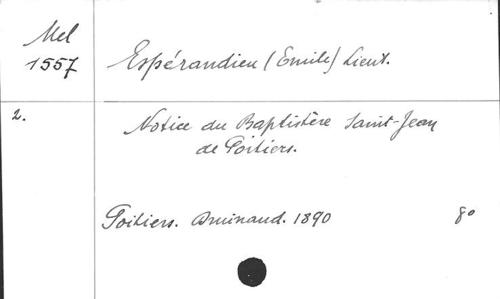 Mel
1557
Espérandieu (Emile) Lieut.
2.
Notice du Baptistère Saint-Jean
de Poitiers.
Poitiers. 1890
8o